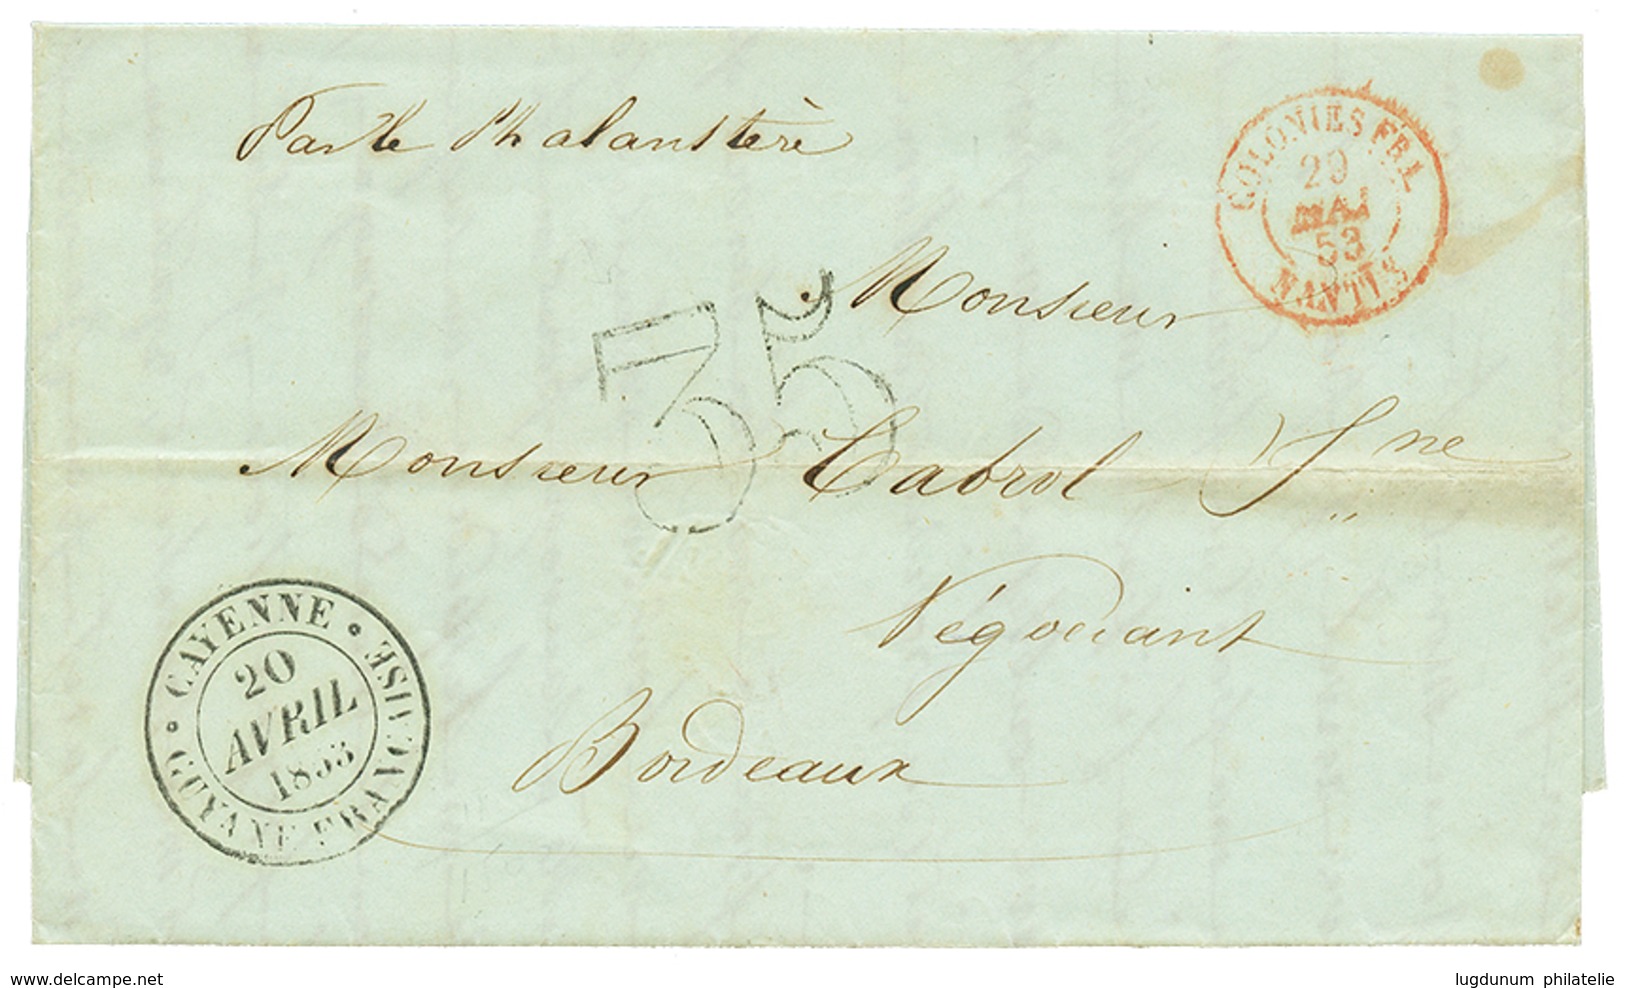 Par le Phalanstère
COLONIES FRA.
29
MAI
53
NANTES
Monsieur
35
Monsieur Cabrol Jne
Négociant
Bordeaux
CAYENNE
GUYANE FRANÇAISE
20
AVRIL
1853
www.delcampe.net
lugdunum philatelie